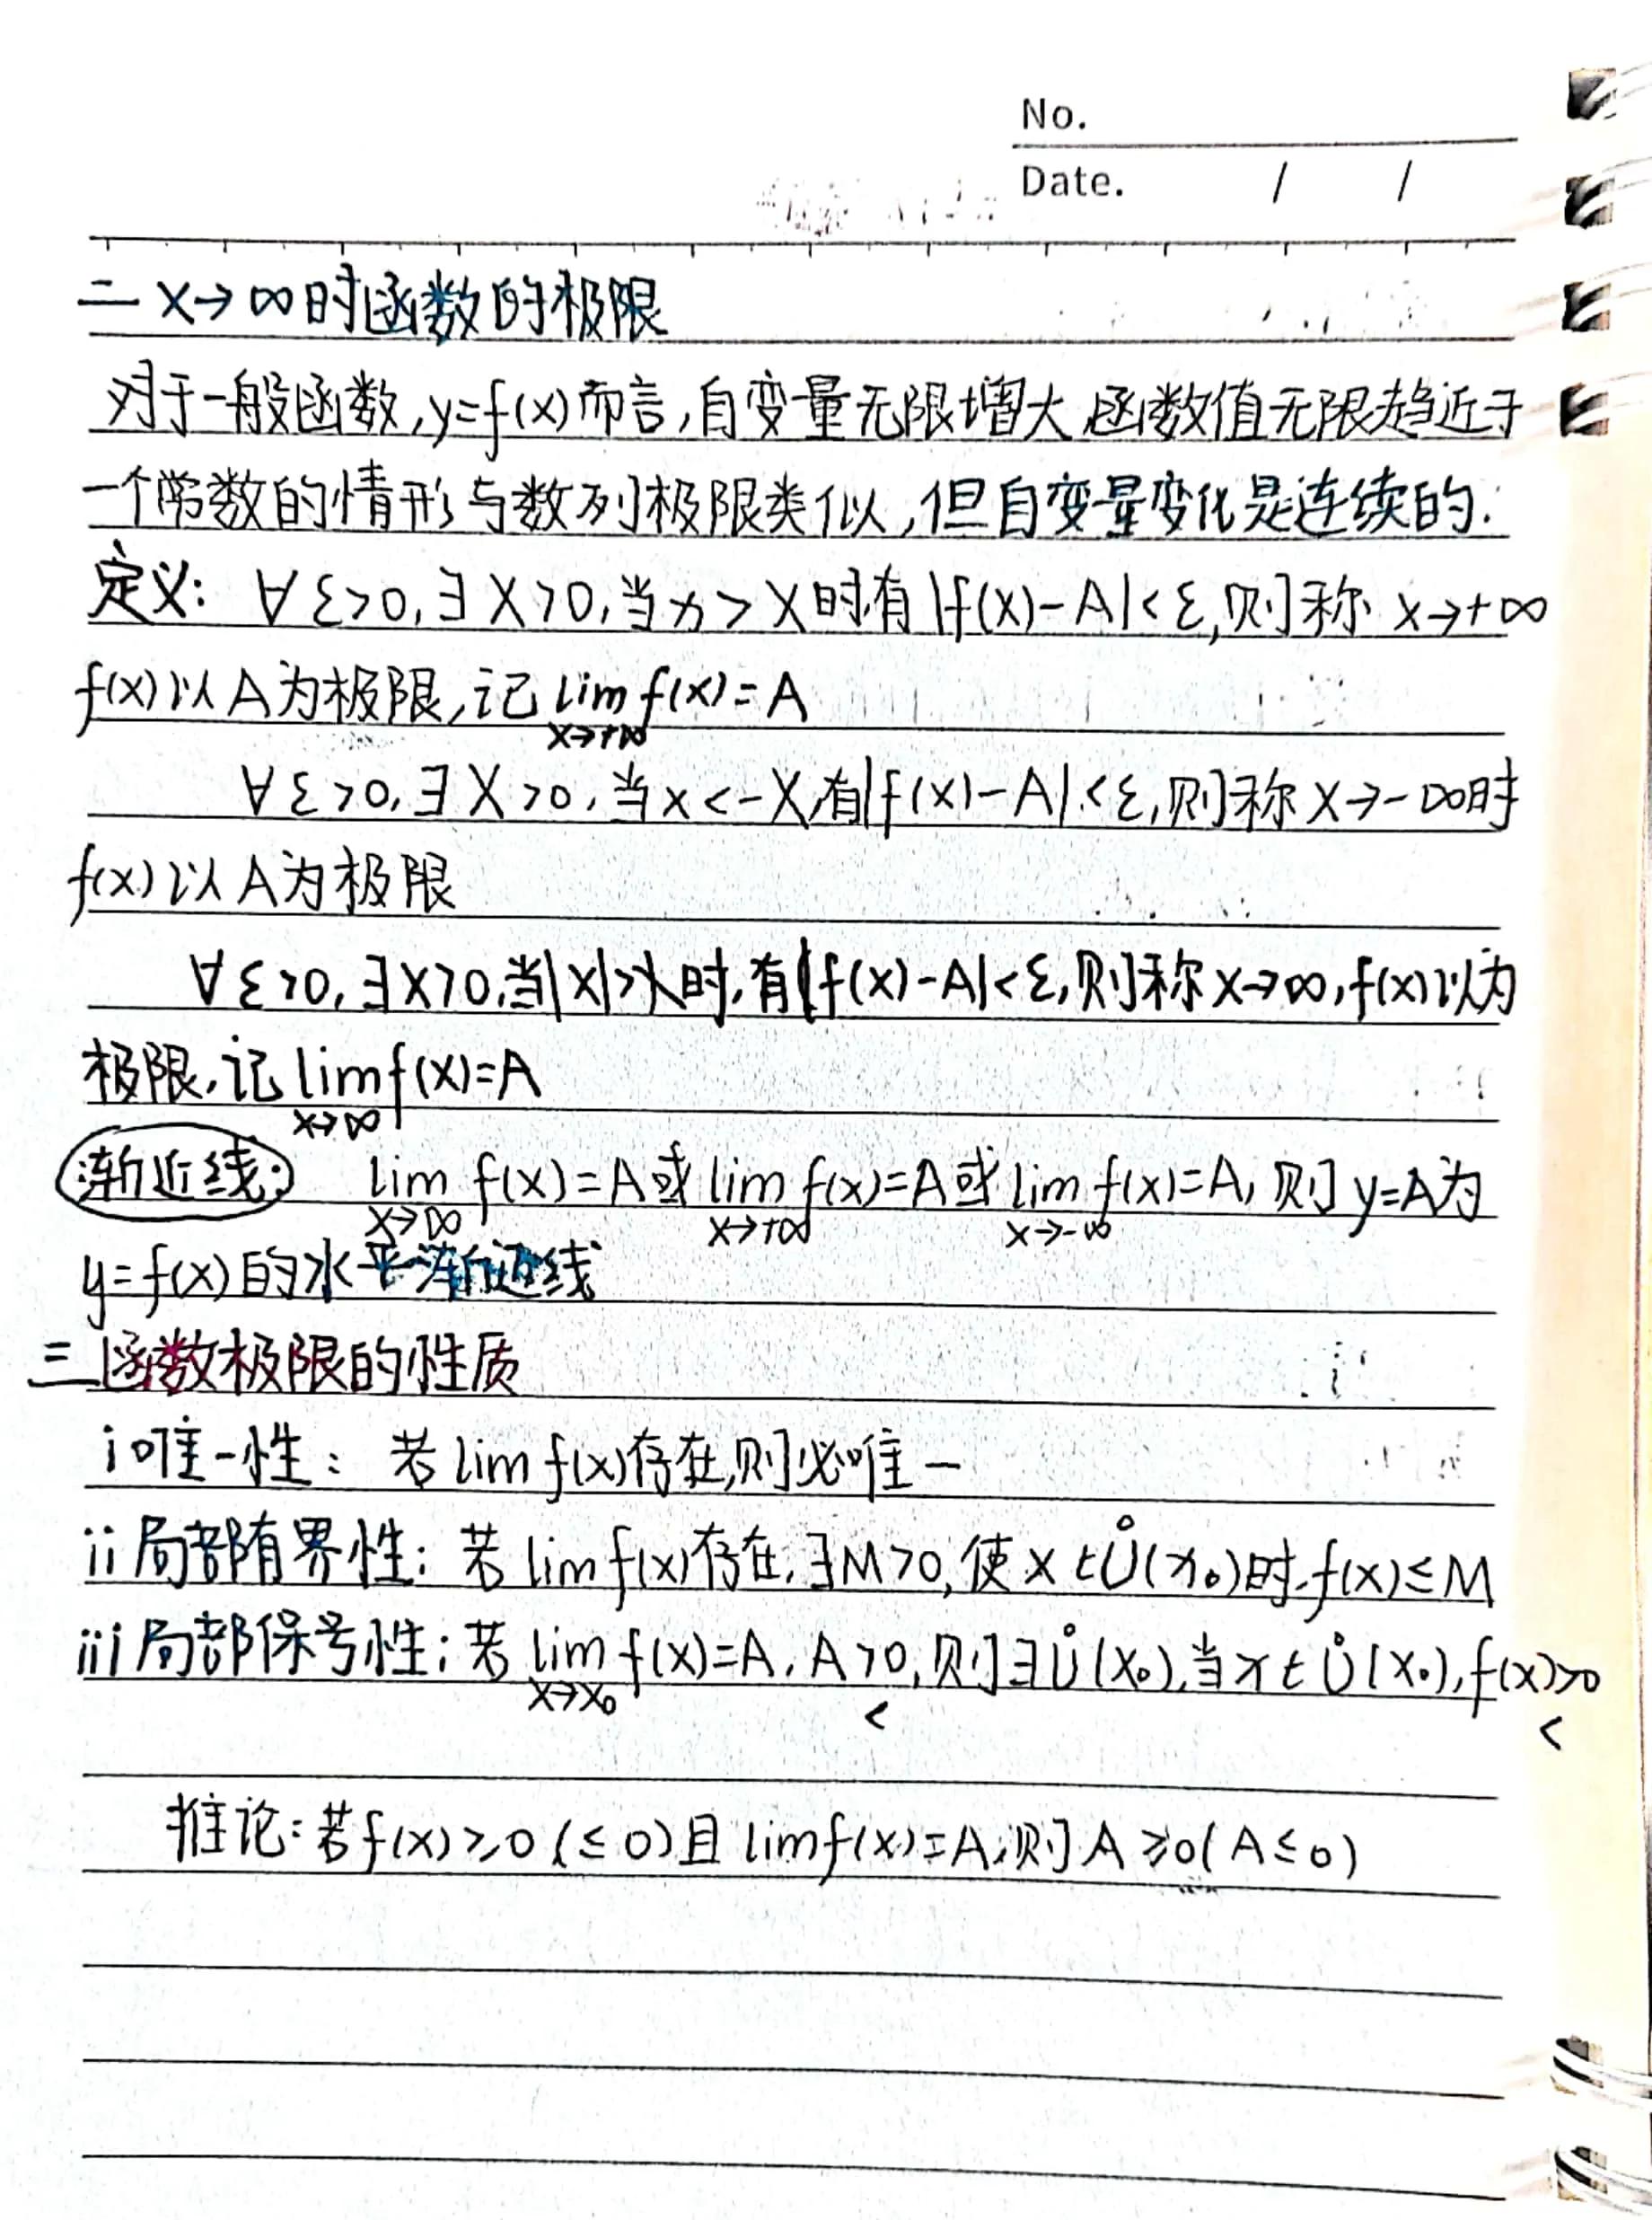 No.
Date. / /
二 x→∞时函数的极限
对于一般函数,y=f(x)而言,自变量无限增大,函数值无限趋近于
一个常数的情形与数列极限类似,但自变量变化是连续的.
定义: ∀ε>0,∃X>0,当x>X时有|f(x)-A|<ε,则称 x→+∞
f(x)以A为极限,记lim f(x)=A
x→+∞
∀ε>0,∃X>0,当x<-X,有|f(x)-A|<ε,则称x→-∞时
f(x)以A为极限
∀ε>0,∃X>0,当|x|>X时,有|f(x)-A|<ε,则称x→∞,f(x)以为
极限,记lim f(x)=A
x→∞
渐近线: lim f(x)=A或lim f(x)=A或lim f(x)=A,则y=A为
x→∞ x→+∞ x→-∞
y=f(x)的水平渐近线
三 函数极限的性质
i 唯一性: 若lim f(x)存在,则必唯一
ii 局部有界性: 若lim f(x)存在,∃M>0,使x∈Ů(x₀)时,f(x)≤M
iii 局部保号性: 若lim f(x)=A,A>0,则∃Ů(x₀),当x∈Ů(x₀),f(x)>0
x→x₀ < <
推论:若f(x)≥0(≤0)且lim f(x)=A,则A≥0(A≤0)